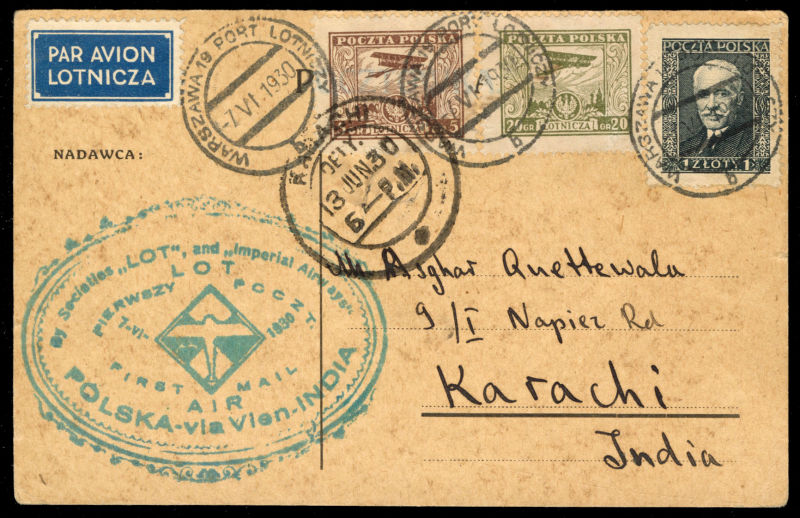 PAR AVION
LOTNICZA
WARSZAWA 19 PORT LOTNICZY
-7.VI.1930
POCZTA POLSKA
POCZTA POLSKA
20 GR LOTNICZA GR 20
POCZTA POLSKA
1 ZŁOTY 1
KARACHI
DELY.
13 JUN. 30
5 - P.M.
b
b
NADAWCA:
By Societies „LOT", and „Imperial Airways"
LOT
PIERWSZY POCZT.
7-VI- 1930
FIRST MAIL
AIR
POLSKA-via Vien-INDIA
Asghar Quettewala
9/I Napier Rd
Karachi
India